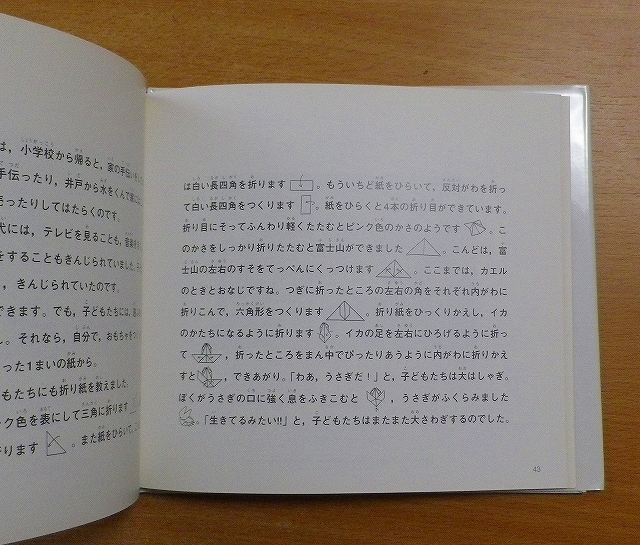 は、小学校から帰ると、家の手伝い
手伝ったり、井戸から水をくんで
ったりしてはたらくのです。
代には、テレビを見ることも、音楽
をすることもきんじられていました。
、きんじられていたのです。
できます。でも、子どもたちには、
。それなら、自分で、おもちゃをつ
った1まいの紙から。
もたちにも折り紙を教えました。
ク色を表にして三角に折ります
ります。また紙をひらいて、
は白い長四角を折ります。もういちど紙をひらいて、反対がわを折っ
て白い長四角をつくります。紙をひらくと4本の折り目ができています。
折り目にそってふんわり軽くたたむとピンク色のかさのようです。こ
のかさをしっかり折りたたむと富士山ができました。こんどは、富
士山の左右のすそをてっぺんにくっつけます。ここまでは、カエル
のときとおなじですね。つぎに折ったところの左右の角をそれぞれ内がわに
折りこんで、六角形をつくります。折り紙をひっくりかえし、イカ
のかたちになるように折ります。イカの足を左右にひろげるように折っ
て、折ったところをまん中でぴったりあうように内がわに折りかえ
すと、できあがり。「わあ、うさぎだ!」と、子どもたちは大はしゃぎ。
ぼくがうさぎの口に強く息をふきこむと、うさぎがふくらみました
。「生きてるみたい!!」と、子どもたちはまたまた大さわぎするのでした。
43